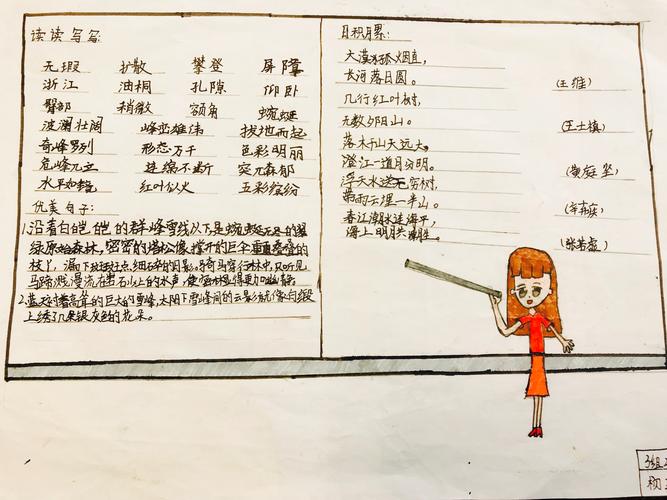 读读写写：
无瑕 扩散 攀登 屏障
浙江 油桐 孔隙 仰卧
臀部 稍微 额角 蜿蜒
波澜壮阔 峰峦雄伟 拔地而起
奇峰罗列 形态万千 色彩明丽
危峰兀立 连绵不断 突兀森郁
水平如镜 红叶似火 五彩缤纷
优美句子：
1.沿着白皑皑的群峰雪线以下是蜿蜒无尽的翠
绿原始森林，密密的塔松像撑开的巨伞重重叠叠的
枝丫，漏下斑斑点点细碎的日影。骑马穿行林中，只听见
马蹄溅漫流在石上的水声，使密林显得更加幽静。
2.蓝天衬着高耸的巨大的雪峰，太阳下雪峰间的云影就像白缎
上绣了几朵银灰色的花朵。
日积月累：
大漠孤烟直，
长河落日圆。 (王维)
几行红叶树，
无数夕阳山。 (王士禛)
落木千山天远大，
澄江一道月分明。 (黄庭坚)
浮天水送无穷树，
带雨云埋一半山。 (辛弃疾)
春江潮水连海平，
海上明月共潮生。 (张若虚)
班